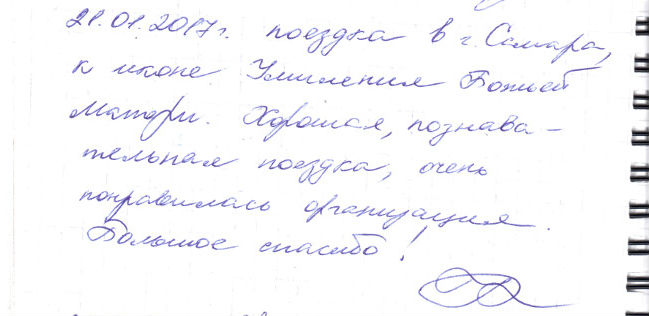 21.01.2017г. поездка в г. Самара,
к иконе Умиления Божьей
Матери. Хорошая, познава-
тельная поездка, очень
понравилась организация.
Большое спасибо!